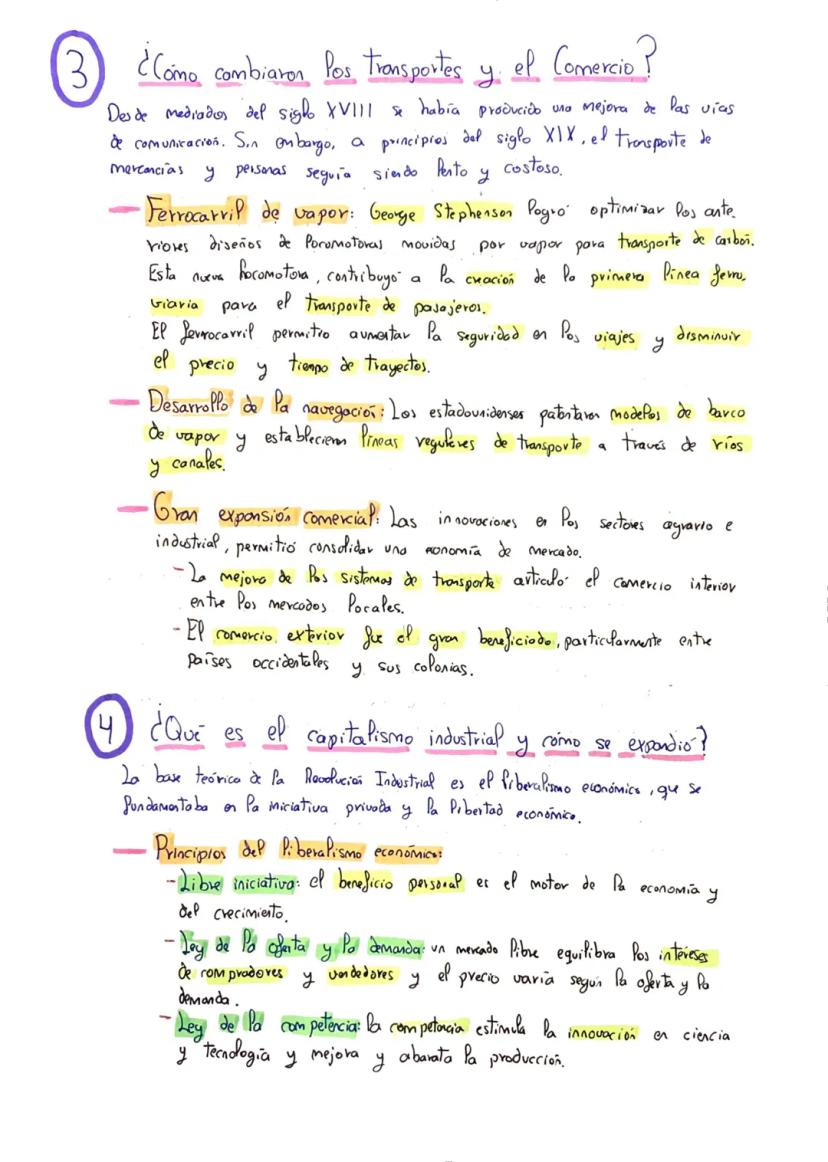 3 ¿Cómo cambiaron los transportes y el Comercio?
Desde mediados del siglo XVIII se había producido una mejora de las vías
de comunicación. Sin embargo, a principios del siglo XIX, el transporte de
mercancías y personas seguía siendo lento y costoso.
— Ferrocarril de vapor: George Stephenson logró optimizar los ante
riores diseños de locomotoras movidas por vapor para transporte de carbón.
Esta nueva locomotora, contribuyó a la creación de la primera línea ferro
viaria para el transporte de pasajeros.
El ferrocarril permitio aumentar la seguridad en los viajes y disminuir
el precio y tiempo de trayectos.
— Desarrollo de la navegación: Los estadounidenses patentaron modelos de barco
de vapor y establecieron líneas regulares de transporte a través de ríos
y canales.
— Gran expansión comercial: Las innovaciones en los sectores agrario e
industrial, permitió consolidar una economía de mercado.
- La mejora de los sistemas de transporte articuló el comercio interior
entre los mercados locales.
- El comercio exterior fue el gran beneficiado, particularmente entre
países occidentales y sus colonias.
4 ¿Qué es el capitalismo industrial y cómo se expandió?
La base teórica de la Revolución Industrial es el liberalismo económico, que se
fundamentaba en la iniciativa privada y la libertad económica.
— Principios del liberalismo económico:
- Libre iniciativa: el beneficio personal es el motor de la economía y
del crecimiento.
- Ley de la oferta y la demanda: un mercado libre equilibra los intereses
de compradores y vendedores y el precio varía según la oferta y la
demanda.
- Ley de la competencia: la competencia estimula la innovación en ciencia
y tecnología y mejora y abarata la producción.